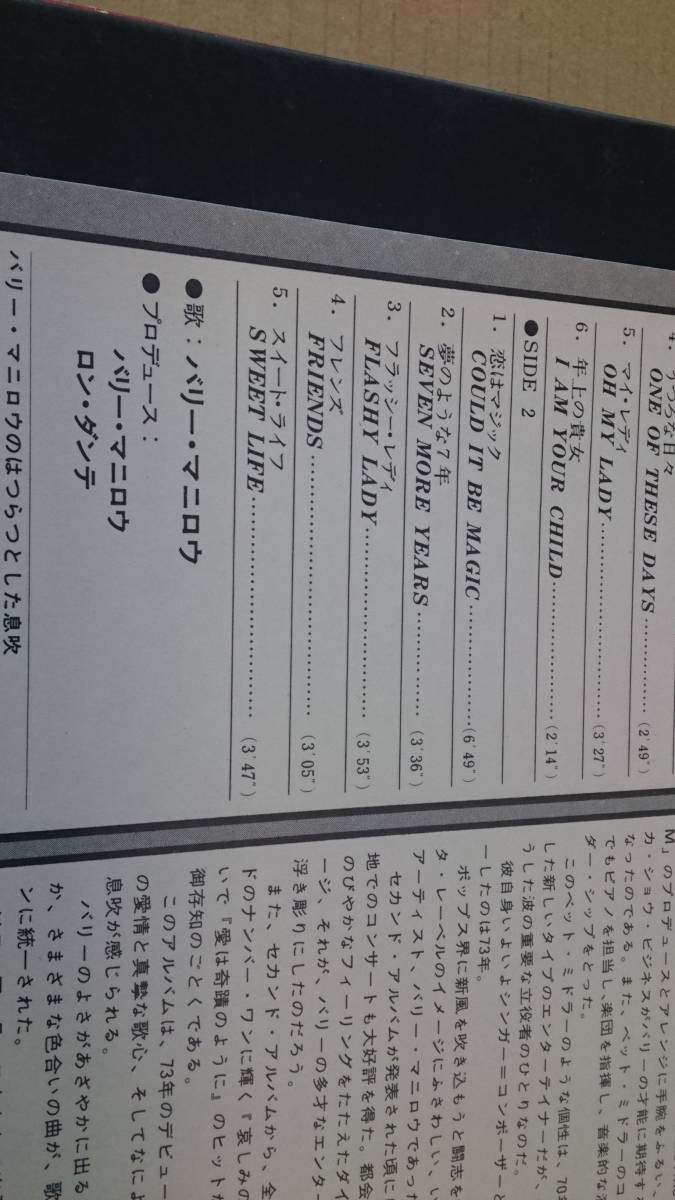 4. うつろな日々
ONE OF THESE DAYS ················ (2'49")
5. マイ・レディ
OH MY LADY ························ (3'27")
6. 年上の貴女
I AM YOUR CHILD ···················· (2'14")
●SIDE 2
1. 恋はマジック
COULD IT BE MAGIC ·················· (6'49")
2. 夢のような7年
SEVEN MORE YEARS ················ (3'36")
3. フラッシー・レディ
FLASHY LADY ························ (3'53")
4. フレンズ
FRIENDS ······························ (3'05")
5. スイート・ライフ
SWEET LIFE ·························· (3'47")
●歌：バリー・マニロウ
●プロデュース：
バリー・マニロウ
ロン・ダンテ
バリー・マニロウのはつらつとした息吹
M」のプロデュースとアレンジに手腕をふるい、
カ・ショウ・ビジネスがバリーの才能に期待す
なったのである。また、ベット・ミドラーのコ
でもピアノを担当し、楽団を指揮し、音楽的な
ダー・シップをとった。
このベット・ミドラーのような個性は、70
した新しいタイプのエンターテイナーだが、
うした波の重要な立役者のひとりなのだ。
彼自身いよいよシンガー＝コンポーザーと
ーしたのは73年。
ポップス界に新風を吹き込もうと闘志を
タ・レーベルのイメージにふさわしい、い
アーティスト、バリー・マニロウであった
セカンド・アルバムが発表された頃に
地でのコンサートも大好評を得た。都会
のびやかなフィーリングをたたえたダイ
ージ、それが、バリーの多才なエンター
浮き彫りにしたのだろう。
また、セカンド・アルバムから、全
ドのナンバー・ワンに輝く『哀しみの
いで『愛は奇蹟のように』のヒットが
御存知のごとくである。
このアルバムは、73年のデビュー
の愛情と真摯な歌心、そしてなによ
息吹が感じられる。
バリーのよさがあざやかに出る
か、さまざまな色合いの曲が、歌
ンに統一された。